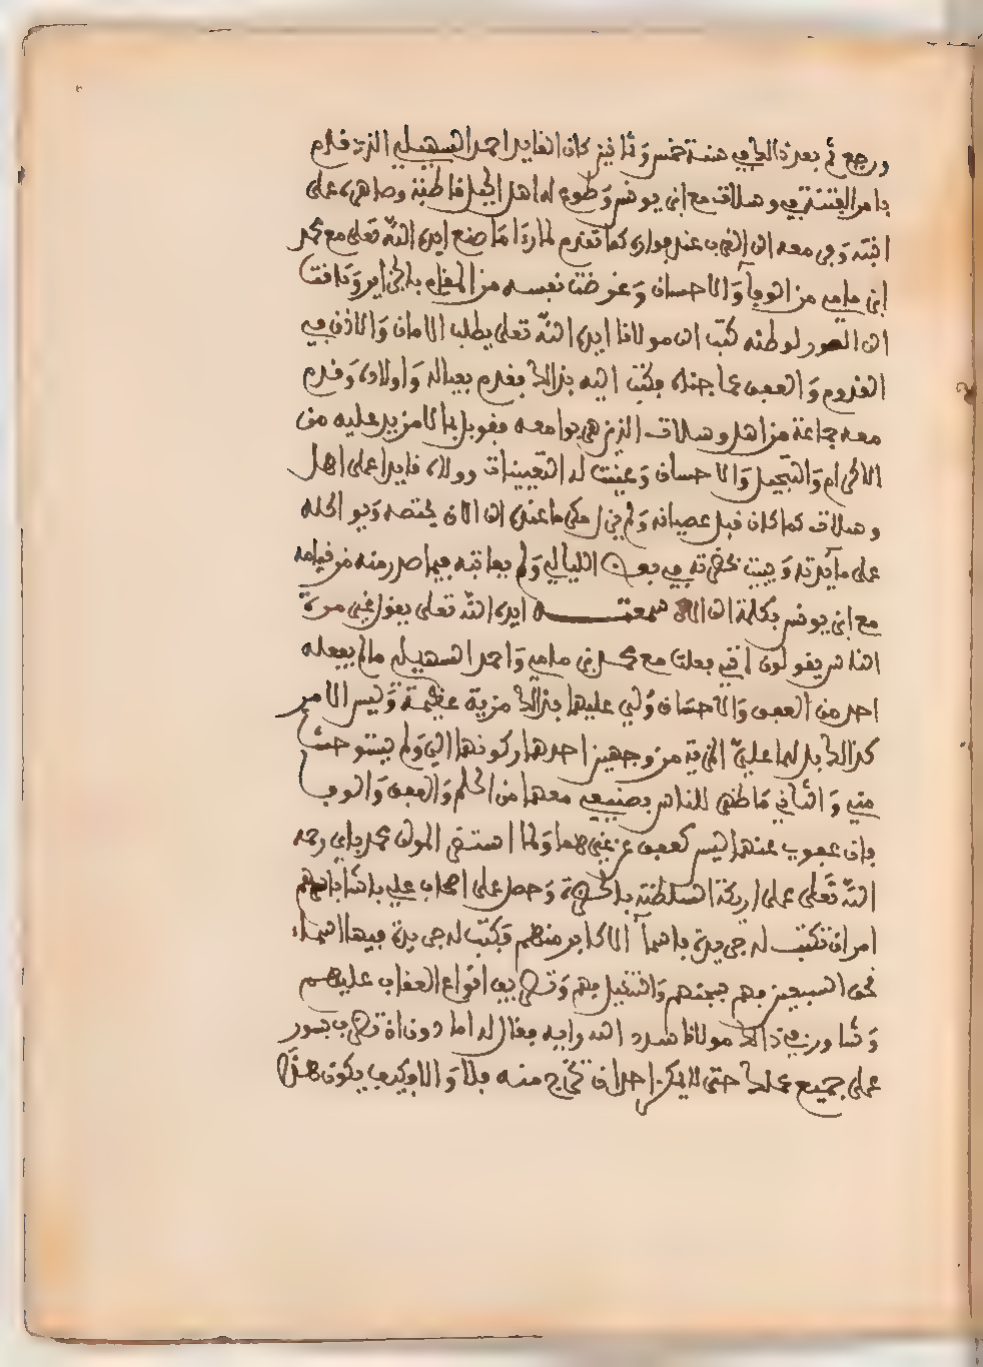 ورجع ثم بعد ذالك في سنة خمس وثمانين كان القايد احمد السهيلي الذي قدم
بامر الفتنة في وسلات مع ابي يونس وطوع له اهل الجبل قاطبة وصاهره على
ابنته وفر معه الى الغرب عند فراره كما تقدم لما رءا ما صنع ايده الله تعلى مع محمد
ابن مامي من الوفآ والاحسان وعوضت نفسه من المقام بالجزاير وتاقت
الى العود لوطنه كتب الى مولانا ايده الله تعلى يطلب الامان والاذن في
القدوم والعفو عما جناه فكتب اليه بذالك فقدم بعياله واولاده وقدم
معه جماعة من اهل وسلات الذين هربوا معه فقوبل بما لا مزيد عليه من
الاكرام والتبجيل والاحسان وعينت له التعيينات وولاه قايدا على اهل
وسلات كما كان قبل عصيانه ولم يزل مكرما عنده الى الان يختصه ويواكله
على مآيدته ويبيت بحضرته في بعض الليالي ولم يعاتبه فيما صدر منه من قيامه
مع ابي يونس بكلمة الى الان سمعته ايده الله تعلى يقول غير مرة
الناس يقولون انني فعلت مع محمد بن مامي واحمد السهيلي ما لم يفعله
احد من العفو والاحسان ولي عليهما بذالك مزية عظيمة وليس الامر
كذالك بل لهما عليّ المزية من وجهين احدهما ركونهما الي ولم يستوحشا
مني والثاني ما ظهر للناس بصنيعي معهما من الحلم والعفو والوفا
فان عفوي عنهما ليس كعفو عن غيرهما ولما استقر المولى محمد باي رحمه
الله تعلى على اريكة السلطنة بالحضرة وحصل على اصحاب علي باشا باسرهم
امر ان تكتب له جريدة باسمآ الاكابر منهم فكتب له جريدة فيها اسماء
نحو السبعين بهم سجنهم والتنكيل بهم وتصريف انواع العقاب عليهم
وشاور في ذالك مولانا سدد الله رايه فقال له اما دون ان تضرب بسور
على جميع عملك حتى لا يمكن احدا ان يخرج منه فلا والا وكيف يكون هذا